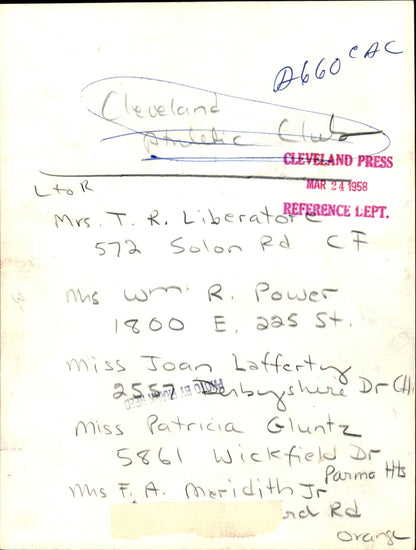 A660 CAC
Cleveland
Athletic Club
CLEVELAND PRESS
MAR 24 1958
REFERENCE DEPT.
L to R
Mrs. T. R. Liberatore
572 Solon Rd CF
Mrs Wm. R. Power
1800 E. 225 St.
Miss Joan Lafferty
2557 Derbyshire Dr CH
PHOTO BY
Miss Patricia Gluntz
5861 Wickfield Dr
Parma Hts
Mrs F. A. Meridith Jr
rd Rd
Orange